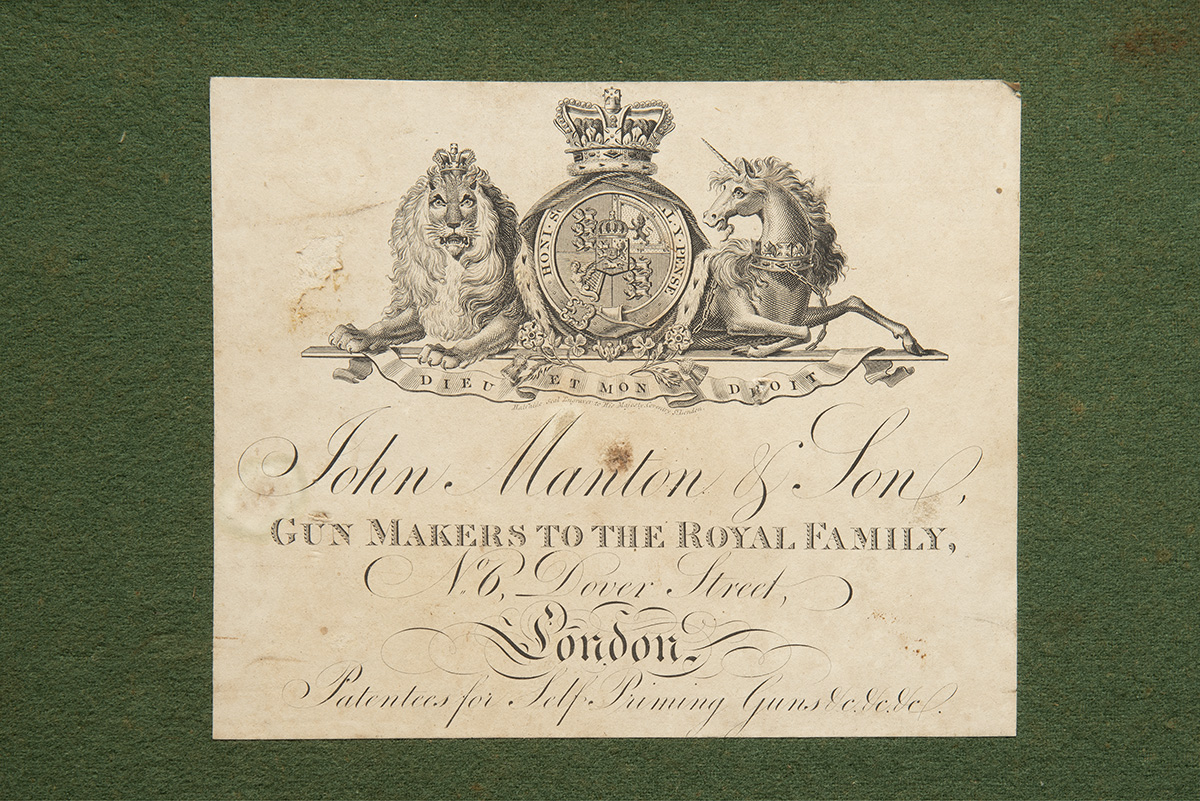 HONI · S
T · Y · PENSE
DIEU ET MON DROIT
Seal Engraver to His Majesty London.
John Manton & Son,
GUN MAKERS TO THE ROYAL FAMILY,
No. 6, Dover Street,
London.
Patentees for Self Priming Guns &c. &c. &c.